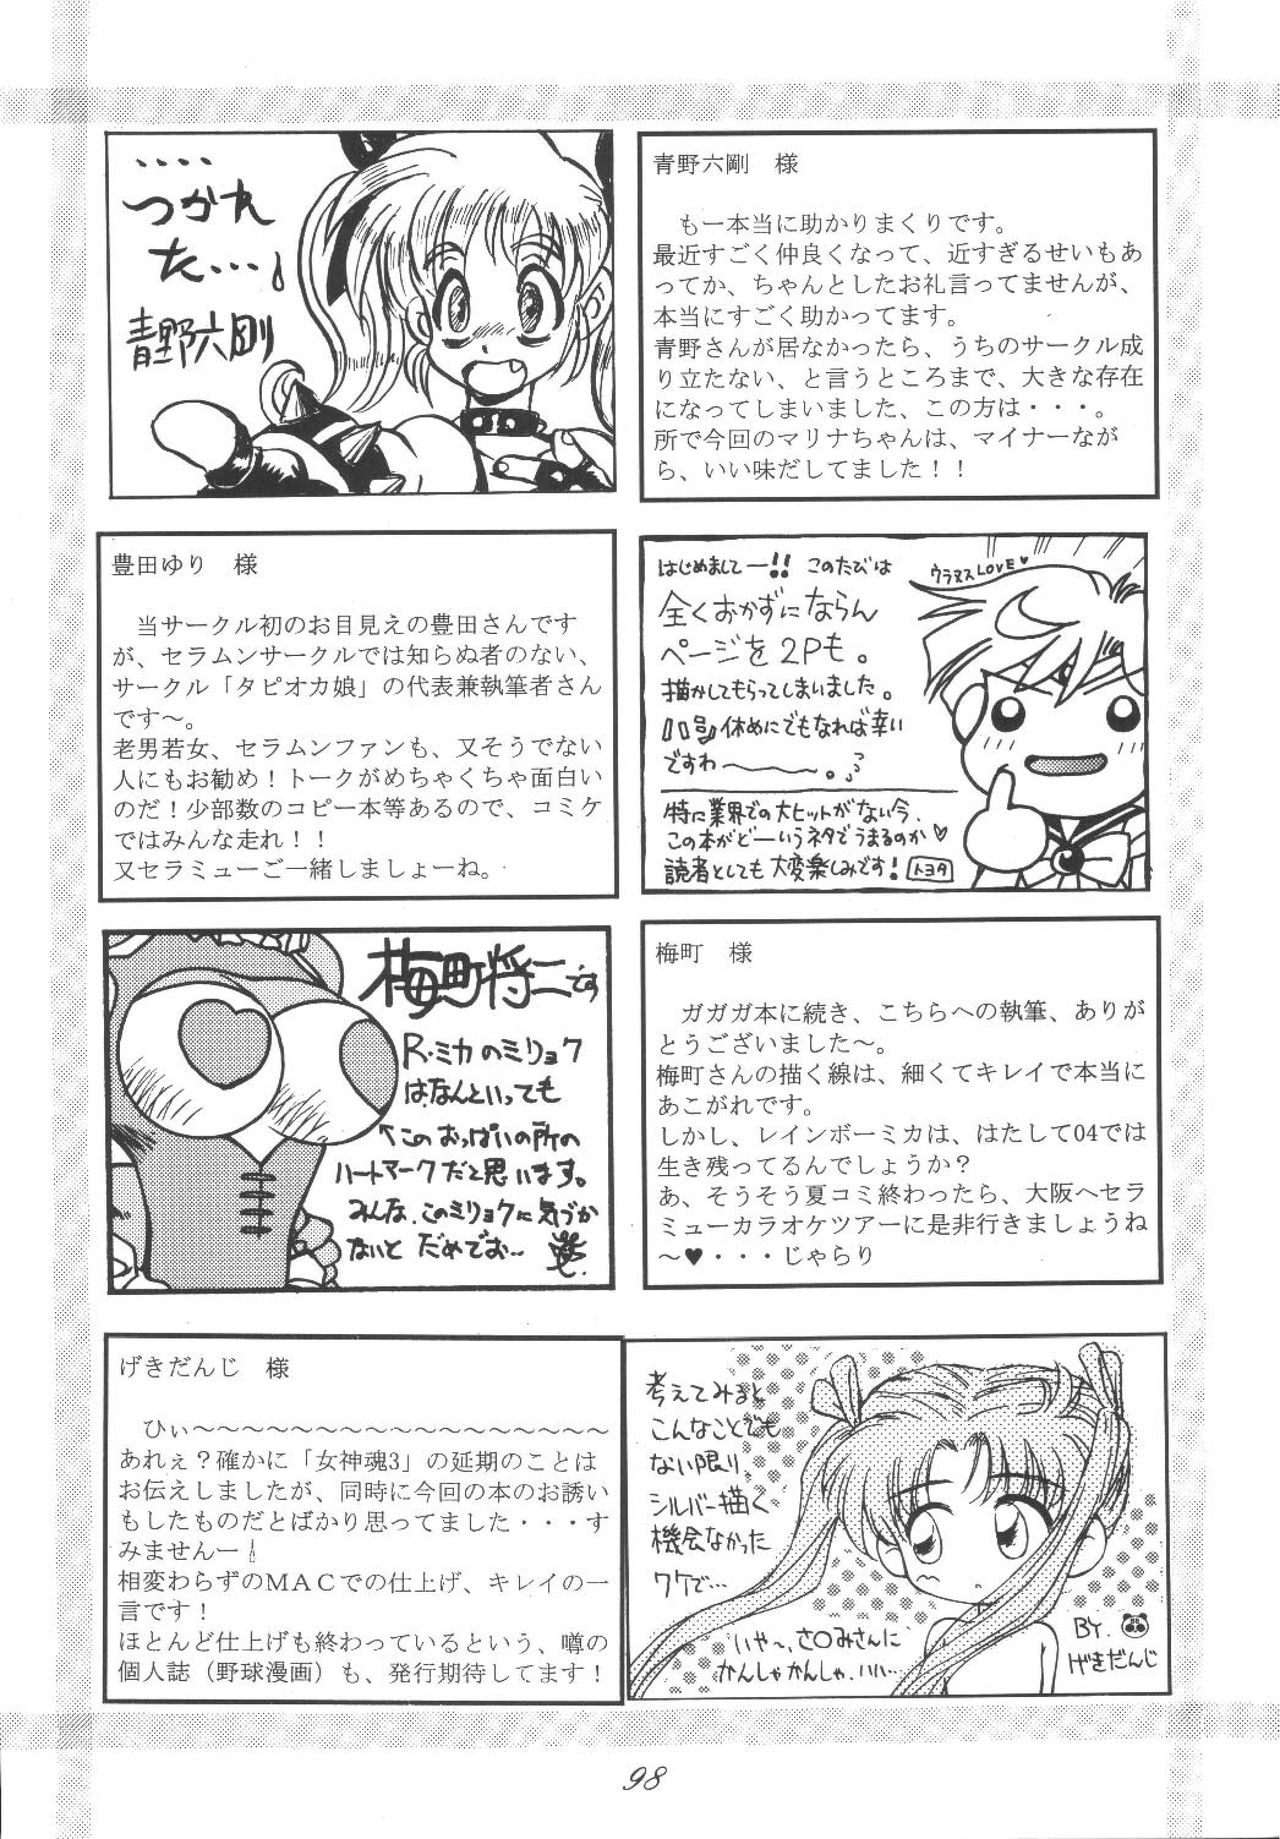 ・・・・
つかれ
た・・・
青野六剛
青野六剛　様
も一本当に助かりまくりです。
最近すごく仲良くなって、近すぎるせいもあ
ってか、ちゃんとしたお礼言ってませんが、
本当にすごく助かってます。
青野さんが居なかったら、うちのサークル成
り立たない、と言うところまで、大きな存在
になってしまいました、この方は・・・。
所で今回のマリナちゃんは、マイナーなが
ら、いい味だしてました！！
豊田ゆり　様
当サークル初のお目見えの豊田さんです
が、セラムンサークルでは知らぬ者のない、
サークル「タピオカ娘」の代表兼執筆者さん
です〜。
老男若女、セラムンファンも、又そうでない
人にもお勧め！トークがめちゃくちゃ面白い
のだ！少部数のコピー本等あるので、コミケ
ではみんな走れ！！
又セラミューご一緒しましょーね。
はじめましてー!! このたびは
全くおかずにならん
ページを2Pも。
描かしてもらってしまいました。
休めにでもなれば幸い
ですわ〜〜〜。
ウラヌスLOVE♥
特に業界での大ヒットがない今、
この本がどーいうネタでうまるのか♥
読者としても大変楽しみです! トヨタ
梅町将二です
R・ミカのミリョク
は、なんといっても
←このおっぱいの所の
ハートマークだと思います。
みんな、このミリョクに気づか
ないと だめでお…
梅町　様
ガガガ本に続き、こちらへの執筆、ありが
とうございました〜。
梅町さんの描く線は、細くてキレイで本当に
あこがれです。
しかし、レインボーミカは、はたして04では
生き残ってるんでしょうか？
あ、そうそう夏コミ終わったら、大阪へセラ
ミューカラオケツアーに是非行きましょうね
〜♥・・・じゃらり
げきだんじ　様
ひぃ〜〜〜〜〜〜〜〜〜〜〜〜〜〜〜〜〜
あれぇ？確かに「女神魂3」の延期のことは
お伝えしましたが、同時に今回の本のお誘い
もしたものだとばかり思ってました・・・す
みませんー
相変わらずのＭＡＣでの仕上げ、キレイの一
言です！
ほとんど仕上げも終わっているという、噂の
個人誌（野球漫画）も、発行期待してます！
考えてみると
こんなことでも
ない限り、
シルバー描く
機会なかった
ワケで…
いや〜、さ○みさんに
かんしゃかんしゃ、いい…
BY.
げきだんじ
98